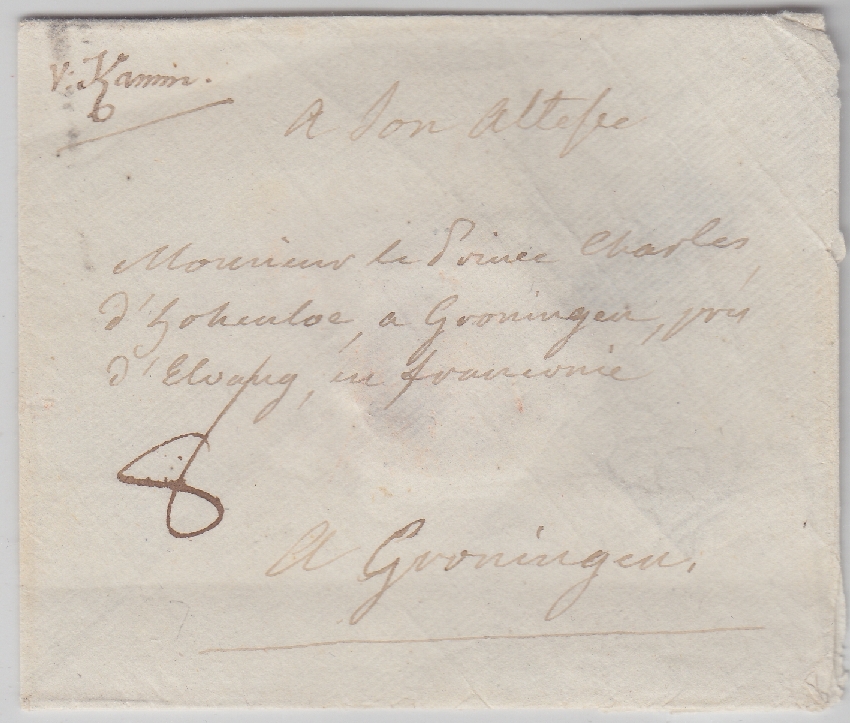 v: Kamin.
A Son Altesse
Monsieur le Prince Charles,
d'hohenloe, a Groningen, près
d'Elvang, en franconie
8
A Groningen.